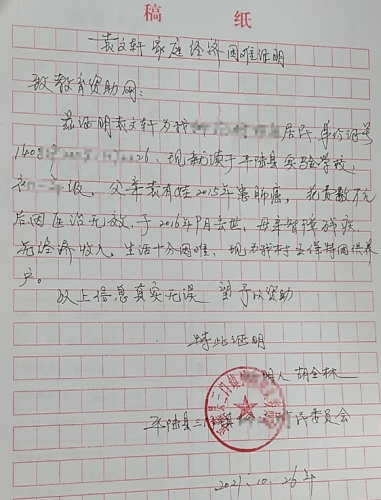 稿 纸
袁文轩家庭经济困难证明
致教育资助网:
兹证明袁文轩为我 居民,身份证号
1408 26,现就读于平陆县实验学校,
初一年级,父亲袁有娃2015年患肺癌,花费数万元
后因医治无效,于2016年9月去世,母亲智障残疾,
无经济收入,生活十分困难,现为我村五保特困供养
户。
以上信息真实无误 望予以资助
特此证明
明人 胡全林
平陆县三门镇 民委员会
2021.10.26年